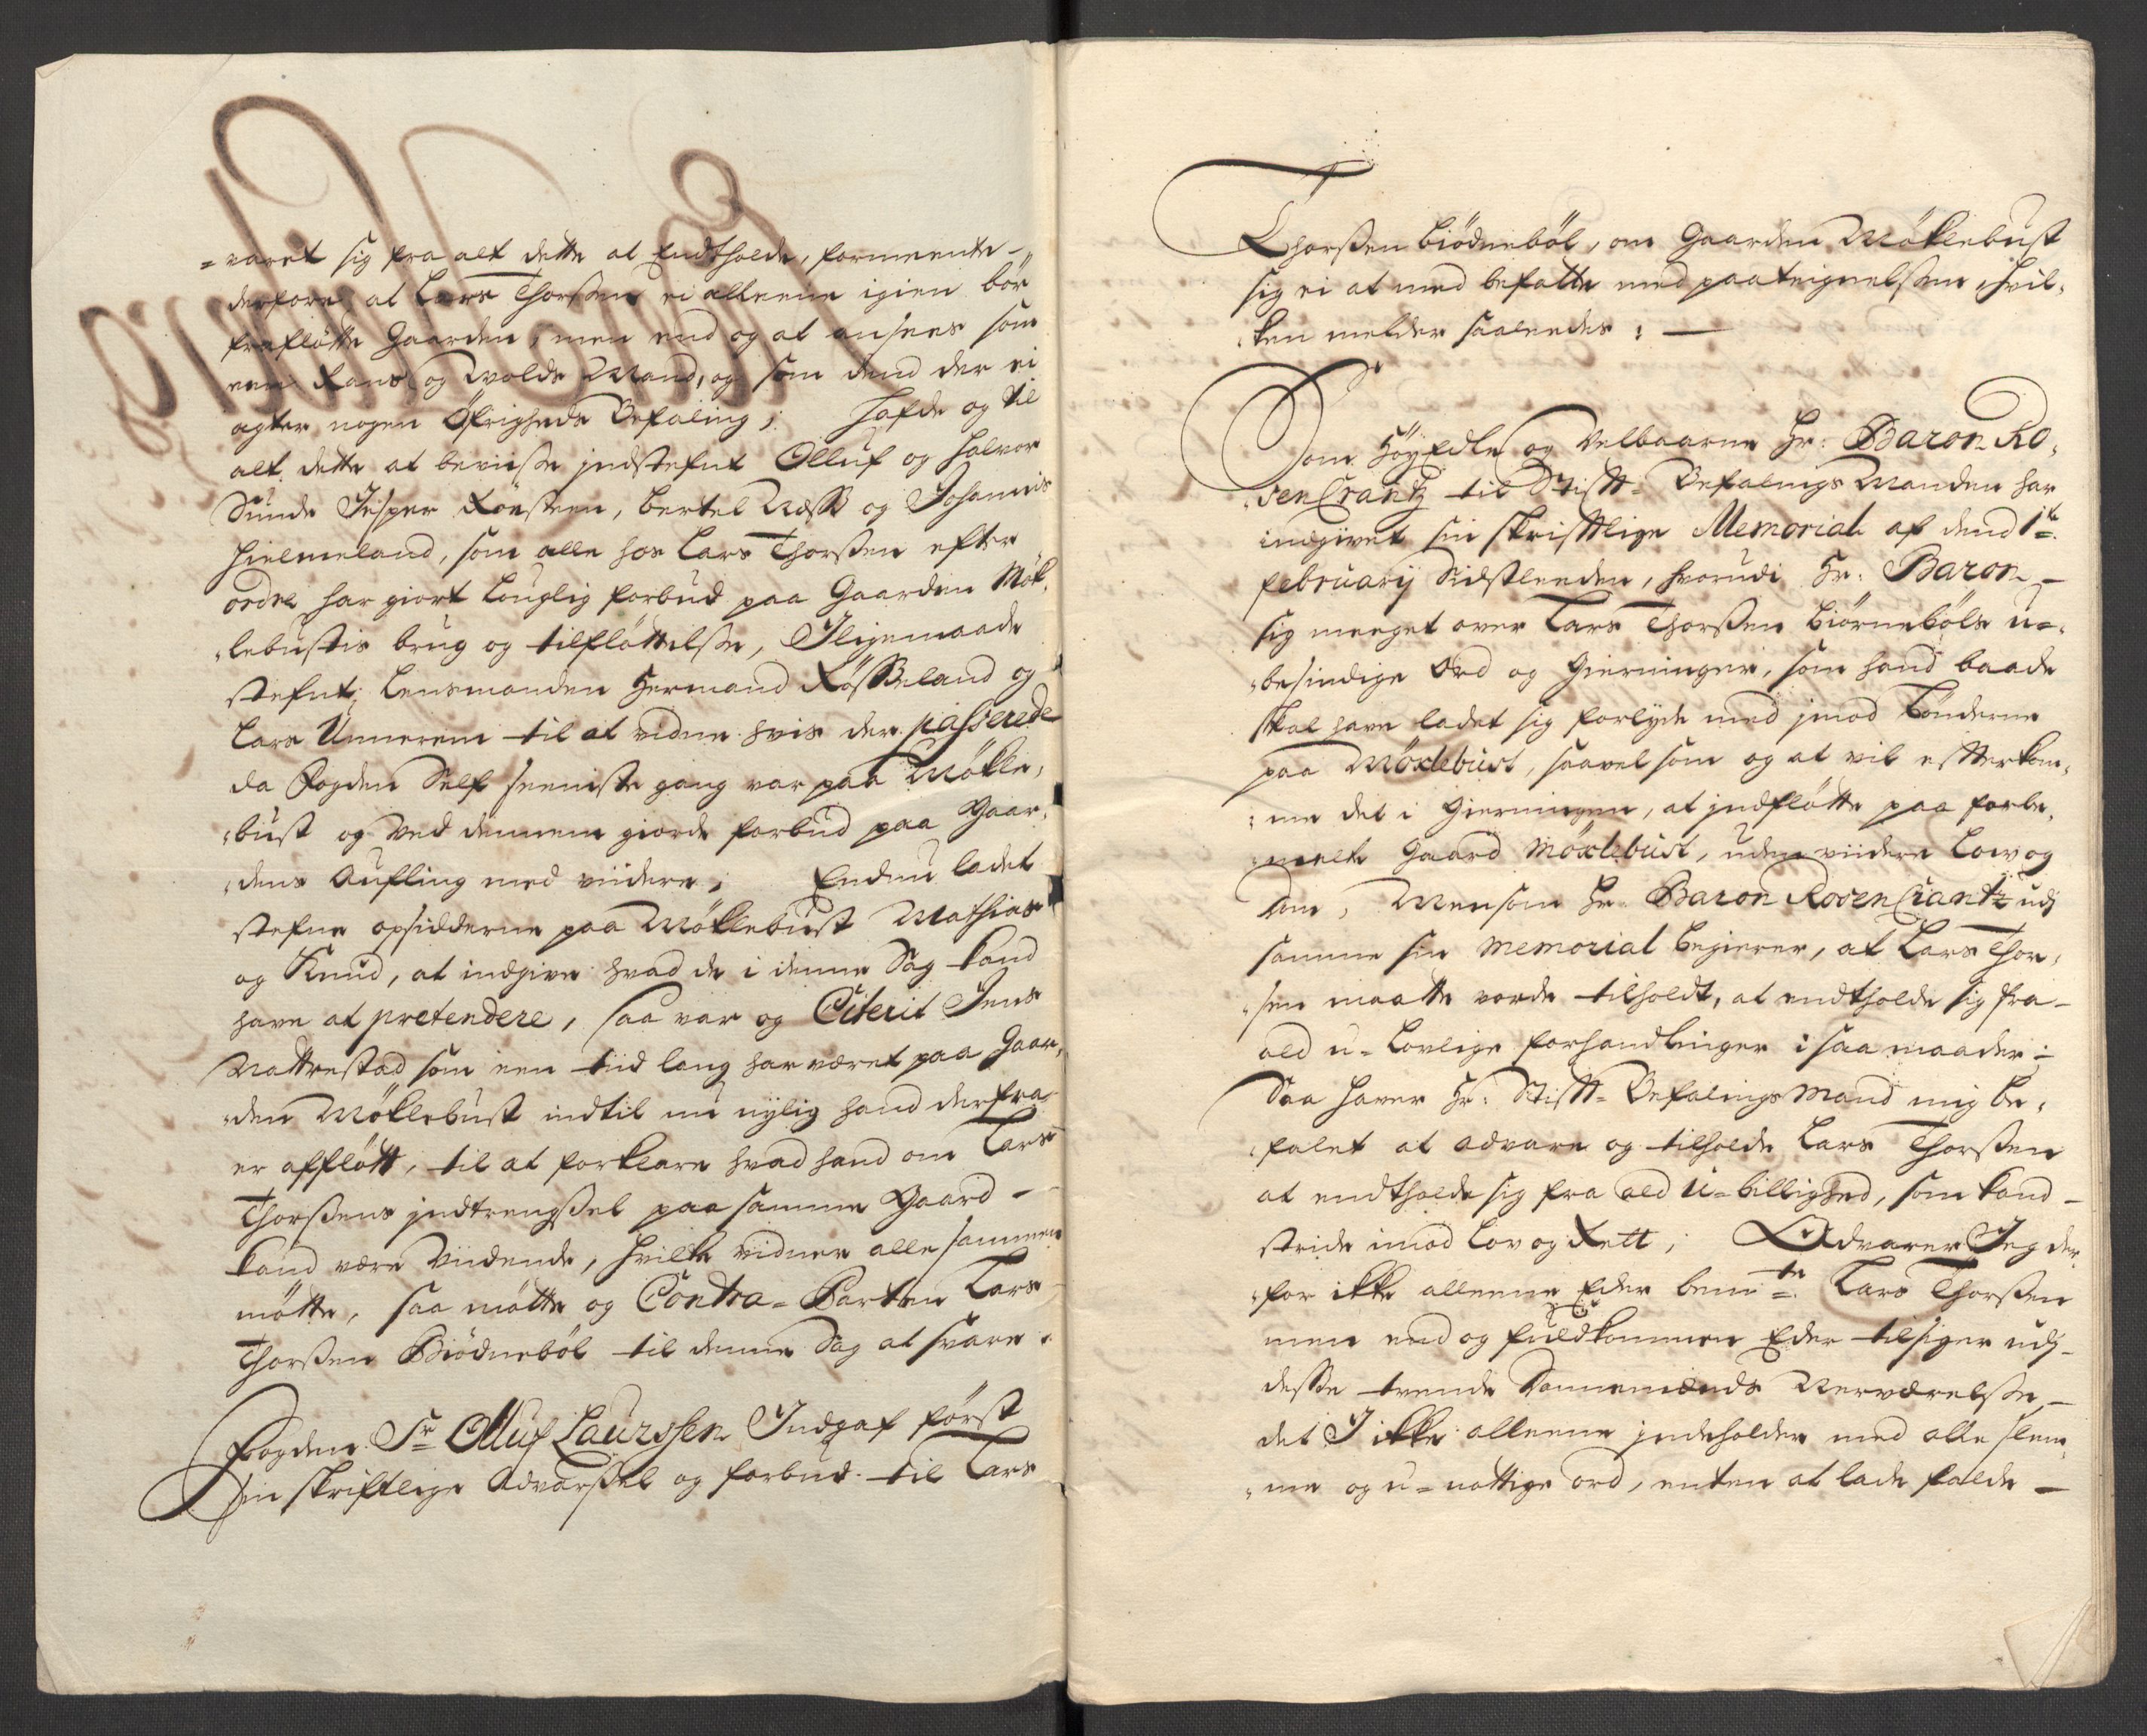 =varet sig fra alt dette at Endtholde, formeente –
derfore at Lars Thorßen ei alleene igien bör
frafløtte Gaarden, men end og at ansees som
een Rans og Wolds Mand, og som dend der ei
agter nogen Öfrigheds Befaling; Hafde og til
alt dette at beviise jndstefnt Olluf og Halvor
Sunde Jesper Röesteen, Bertel Næss og Johannis
Hielmeland, som alle hos Lars Thorßen efter
ordre har giort Louglig forbud paa Gaarden Mök,
,lebustis brug og tilfløttelse, Iligemaade
stefnt; Lensmanden Hermand Rößeland og
Lars Unnerem til at vidne hvis der passerede
da Fogden Self seeniste gang var paa Mökle,
,bust og ved dennem giorde forbud paa Gaar,
,dens Aufling med viidere; Endnu ladet
stefne opsidderne paa Möklebust Mathias
og Knud, at indgive hvad de i denne Sag kand
have at pretendere, saa var og Citerit Jens
Nattrestad som een tiid lang har været paa Gaar,
,den Möklebust indtil nu nÿlig hand derfra
er afflött, til at forklare hvad hand om Lars
Thorßens jndtrengßel paa samme Gaard –
kand være Viidende, hvilke vidner alle sammen
mötte, saa mötte og Contra=Parten Lars
Thorßen Biödnebôl til denne Sag at svare.
Fogden Sr Olluf Laurssen Indgaf först
Sin skriftlige Advarßel og forbud til Lars
Thorßen Biödneböl, om Gaarden Möklebust
sig ei at med befatte med paategnelßen, hvil,
,ken melder saaledes: —
Som HöyEdle og Velbaarne Hr: Baron Ro,
,senCrantz til Stift=Befalings Manden har
indgivet sin skriftlige Memorial af dend 1te
februarij Sidstleeden, hvorudi Hr: Baron –
sig meeget over Lars Thorßen Biörneböls u=
,besindige Ord og Gierninger, som hand baade
skal have ladet sig forlyde med jmod Bönderne
paa Möxlebust, saavelsom og at vil efterkom,
,me det i Gierningen, at jndfløtte paa forbe,
,meelte Gaard Möxlebust, uden viidere Lov og
Dom, Men som Hr. Baron RosenCrantz udj
samme sin Memorial begierer, at Lars Thor,
,sen maatte vorde tilholdt, at endtholde sig fra –
ald u=Lovlige forhandlinger i saa maader:
Saa haver Hr: Stift=Befalings Mand mig be,
,falet at advare og tilholde Lars Thorßen
at endtholde sig fra ald u=billighed, som kand –
stride imod Lov og Rett; Advarer Jeg der,
,for ikke alleene Eder bemte Lars Thorßen
men end og fuldkommen Eder tilsiger udj –
desse tvende Dannemænds Nerværelse, –
det I ikke alleene jndeholder med alle slem,
,me og u=nøttige ord, enten at lade falde –